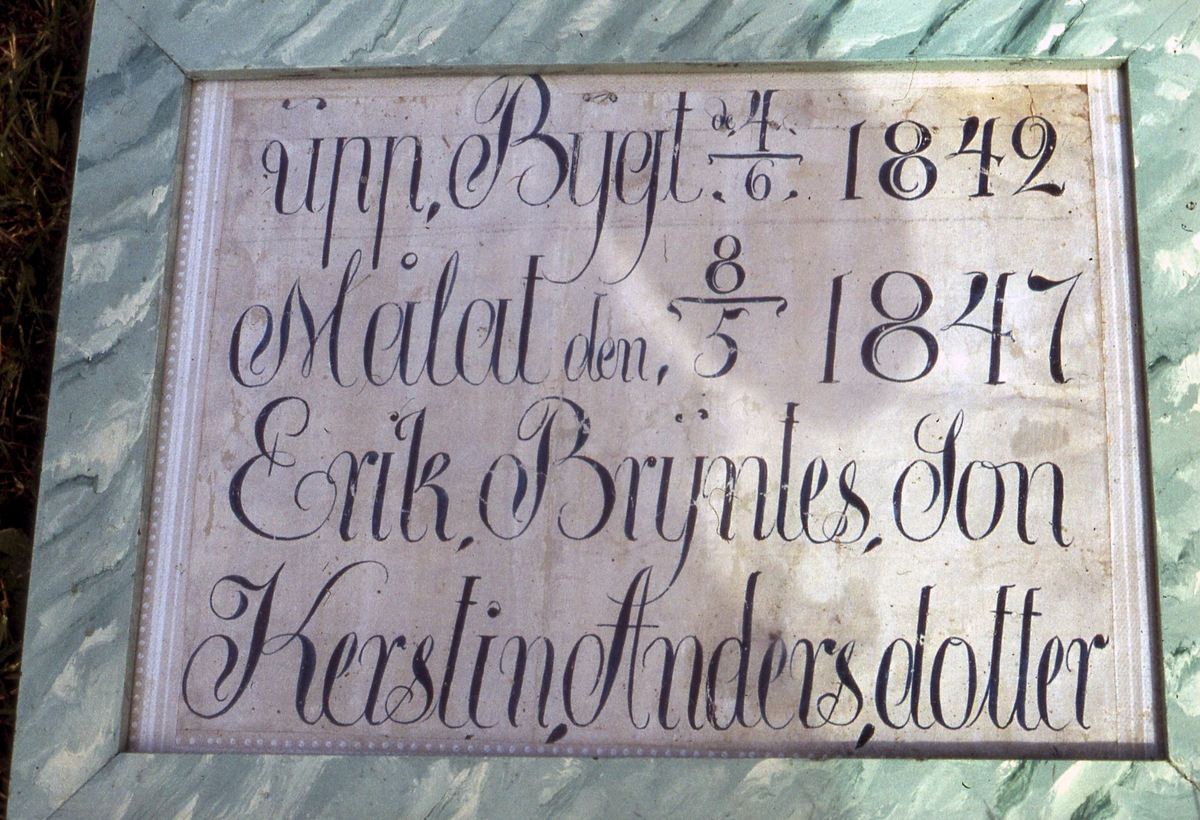 üpp, Bygt de 4/6 1842
Målat den, 8/5 1847
Erik, Brÿntes, Son
Kerstin, Anders, dotter